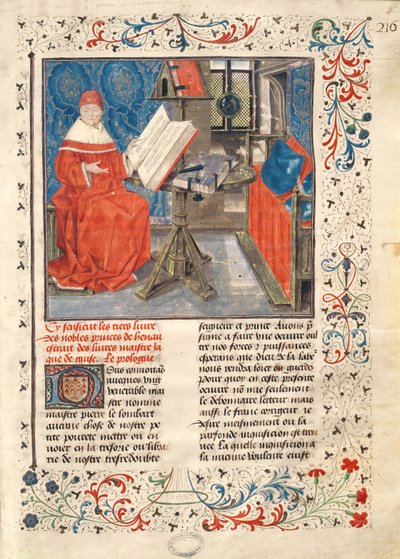 216
Cy fenissent les tiers livre
des nobles princes de henau
extrait des livres maistre ja
que de guise. Le prologue
Nous commotat
aucques ung
venerable mai
stre nomme
maistre pierre le lombart
aucune chose de nostre pe
tite povrete mettre ou en
voier en la tresore ou libra
rie de nostre tresredoubte
seigneur et prince Avons
sume a faire une oeuvre oul
tre nos forces et puissances
esperans que dieu de la
nous rendra
Pour quoy en ceste presente
oeuvre mie seulement
le debonnaire lecteur mais
aussi le franc corrigeur
sire mesmement ou la
parfonde inquisicion est
La quelle inquisicion a
la mienne voulente eust